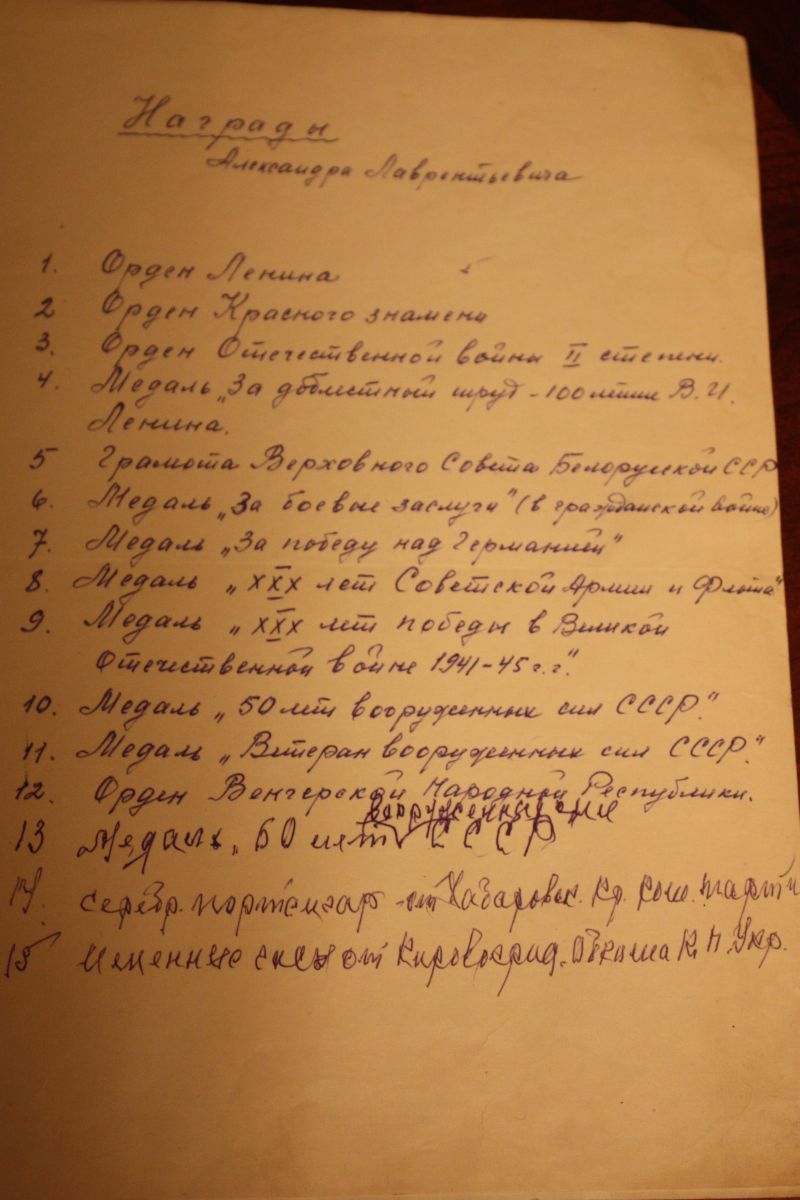 Награды
Александра Лаврентьевича
1. Орден Ленина
2 Орден Красного знамени
3. Орден Отечественной войны II степени.
4. Медаль „За доблестный труд - 100 летие В. И.
Ленина.
5 Грамота Верховного Совета Белорусской ССР
6. Медаль „За боевые заслуги" (в гражданской войне)
7. Медаль „За победу над Германией"
8. Медаль „XXX лет Советской Армии и Флота"
9. Медаль „XXX лет победы в Великой
Отечественной войне 1941-45 г.г."
10. Медаль „50 лет вооруженных сил СССР."
11. Медаль „Ветеран вооруженных сил СССР."
12. Орден Венгерской Народной Республики.
вооруженных сил
13 Медаль „60 лет СССР"
14. серебр. портсигар - от Хабаровск. Кр. Ком. партии
15 Именные часы от Кировоград. Обкома К. П. Укр.